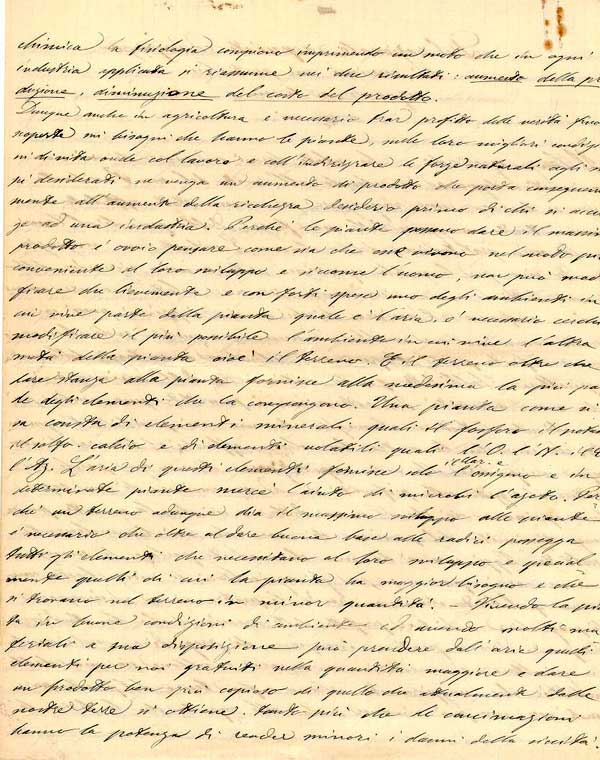 chimica la fisiologia compiono imprimendo un moto che in ogni
industria applicata si riassume nei due risultati: aumento della pro
duzione, diminuzione del costo del prodotto.
Dunque anche in agricoltura è necessario trar profitto delle verità
scoperte sui bisogni che hanno le piante, nelle loro migliori condizio
ni di vita onde col lavoro e coll'indirizzare le forze naturali agli s
pi desiderati ne venga un aumento di prodotto che porta conseguen
mente all'aumento della ricchezza desiderio primo di chi si accin
ge ad una industria. Perché le piante possano dare il massimo
prodotto è ovvio pensare come sia che esse vivono nel modo più
conveniente al loro sviluppo e siccome l'uomo, non può mod
ficare che lievemente e con forti spese uno degli ambienti in
cui vive parte della pianta quale è l'aria, è necessario cerchi
modificare il più possibile l'ambiente in cui vive l'altra
metà della pianta cioè il terreno. E il terreno oltre che
dare stanza alla pianta fornisce alla medesima la più par
te degli elementi che la compongono. Una pianta come si
sa consta di elementi minerali quali il fosforo il potas
il solfo. calcio e di elementi volatili quali l'O. l'N. il
l'Az. L'aria di questi elementi fornisce solo l'ossigeno e in
determinate piante mercè l'aiuto di microbi l'azoto. Per
chè un terreno adunque dia il massimo sviluppo alle piante
è necessario che oltre al dare buona base alle radici possegga
tutti gli elementi che necessitano al loro sviluppo e special
mente quelli di cui la pianta ha maggior bisogno e che
si trovano nel terreno in minor quantità. – Vivendo la pian
ta in buone condizioni di ambiente ed avendo molti ma
teriali a sua disposizione può prendere dall'aria quelli
elementi per noi gratuiti nella quantità maggiore e dare
un prodotto ben più copioso di quello che attualmente dalle
nostre terre si ottiene. tanto più che le concimazioni
hanno la potenza di render minori i danni della siccità.